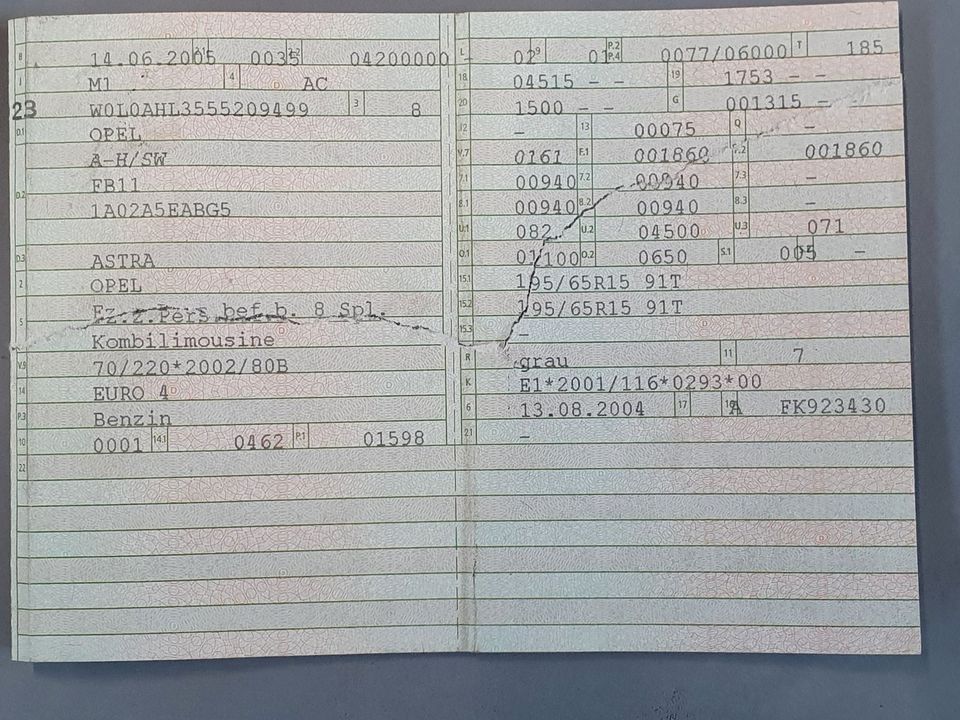 B 14.06.2005 2.1 0035 2.2 04200000 -
J M1 4 AC
E W0L0AHL3555209499 3 8
D.1 OPEL
A-H/SW
D.2 FB11
1A02A5EABG5
D.3 ASTRA
2 OPEL
5 Fz.z.Pers.bef.b. 8 Spl.
Kombilimousine
V.9 70/220*2002/80B
14 EURO 4
P.3 Benzin
10 0001 14.1 0462 P.1 01598
22
L 02 9 01 P.2 P.4 0077/06000 T 185
18 04515 - - 19 1753 - -
20 1500 - - G 001315 -
12 - 13 00075 Q -
V.7 0161 F.1 001860 F.2 001860
7.1 00940 7.2 00940 7.3 -
8.1 00940 8.2 00940 8.3 -
U.1 082 U.2 04500 U.3 071
O.1 01100 O.2 0650 S.1 005 -
15.1 195/65R15 91T
15.2 195/65R15 91T
15.3 -
R grau 11 7
K E1*2001/116*0293*00
6 13.08.2004 17 16 A FK923430
21 -